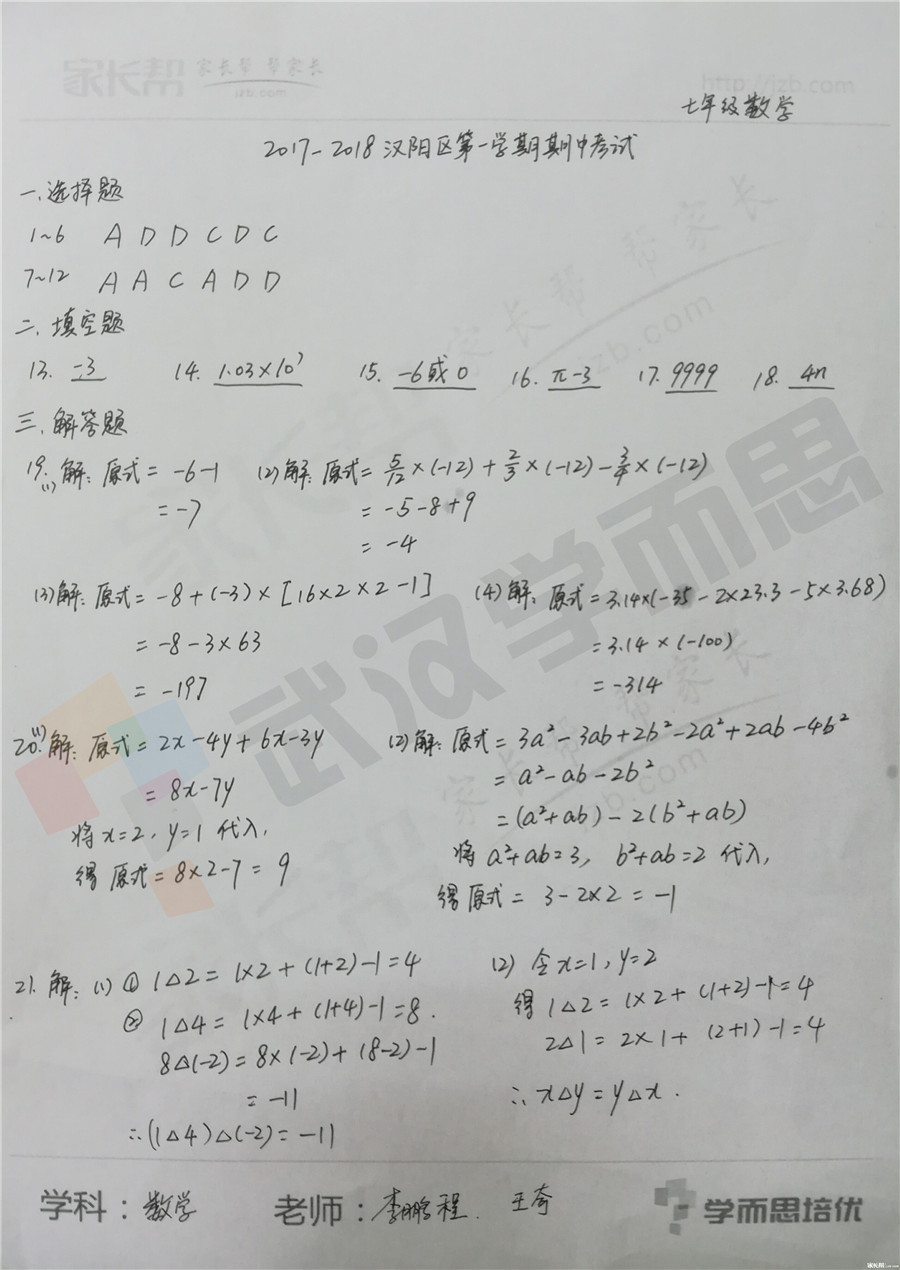 家长帮 家长帮 帮家长
jzb.com
http://jzb.com
七年级数学
2017-2018汉阳区第一学期期中考试
一.选择题
1~6 A D D C D C
7~12 A A C A D D
二.填空题
13. -3 14. 1.03×10⁷ 15. -6或0 16. π-3 17. 9999 18. 4n
三.解答题
19.(1)解:原式= -6-1 (2)解:原式= 5/12×(-12)+2/3×(-12)-3/4×(-12)
=-7 = -5-8+9
= -4
(3)解:原式= -8+(-3)×[16×2×2-1] (4)解:原式=3.14×(-35-2×23.3-5×3.68)
= -8-3×63 =3.14×(-100)
= -197 =-314
20.(1)解:原式=2x-4y+6x-3y (2)解:原式=3a²-3ab+2b²-2a²+2ab-4b²
= 8x-7y = a²-ab-2b²
=(a²+ab)-2(b²+ab)
将x=2,y=1代入, 将a²+ab=3, b²+ab=2代入,
得原式=8×2-7=9 得原式= 3-2×2=-1
21.解:(1)① 1△2=1×2+(1+2)-1=4 (2) 令x=1,y=2
② 1△4=1×4+(1+4)-1=8. 得1△2=1×2+(1+2)-1=4
8△(-2)=8×(-2)+(8-2)-1 2△1=2×1+(2+1)-1=4
= -11 ∴x△y=y△x.
∴(1△4)△(-2)=-11
武汉学而思
学科:数学 老师:李鹏程. 王奇 学而思培优